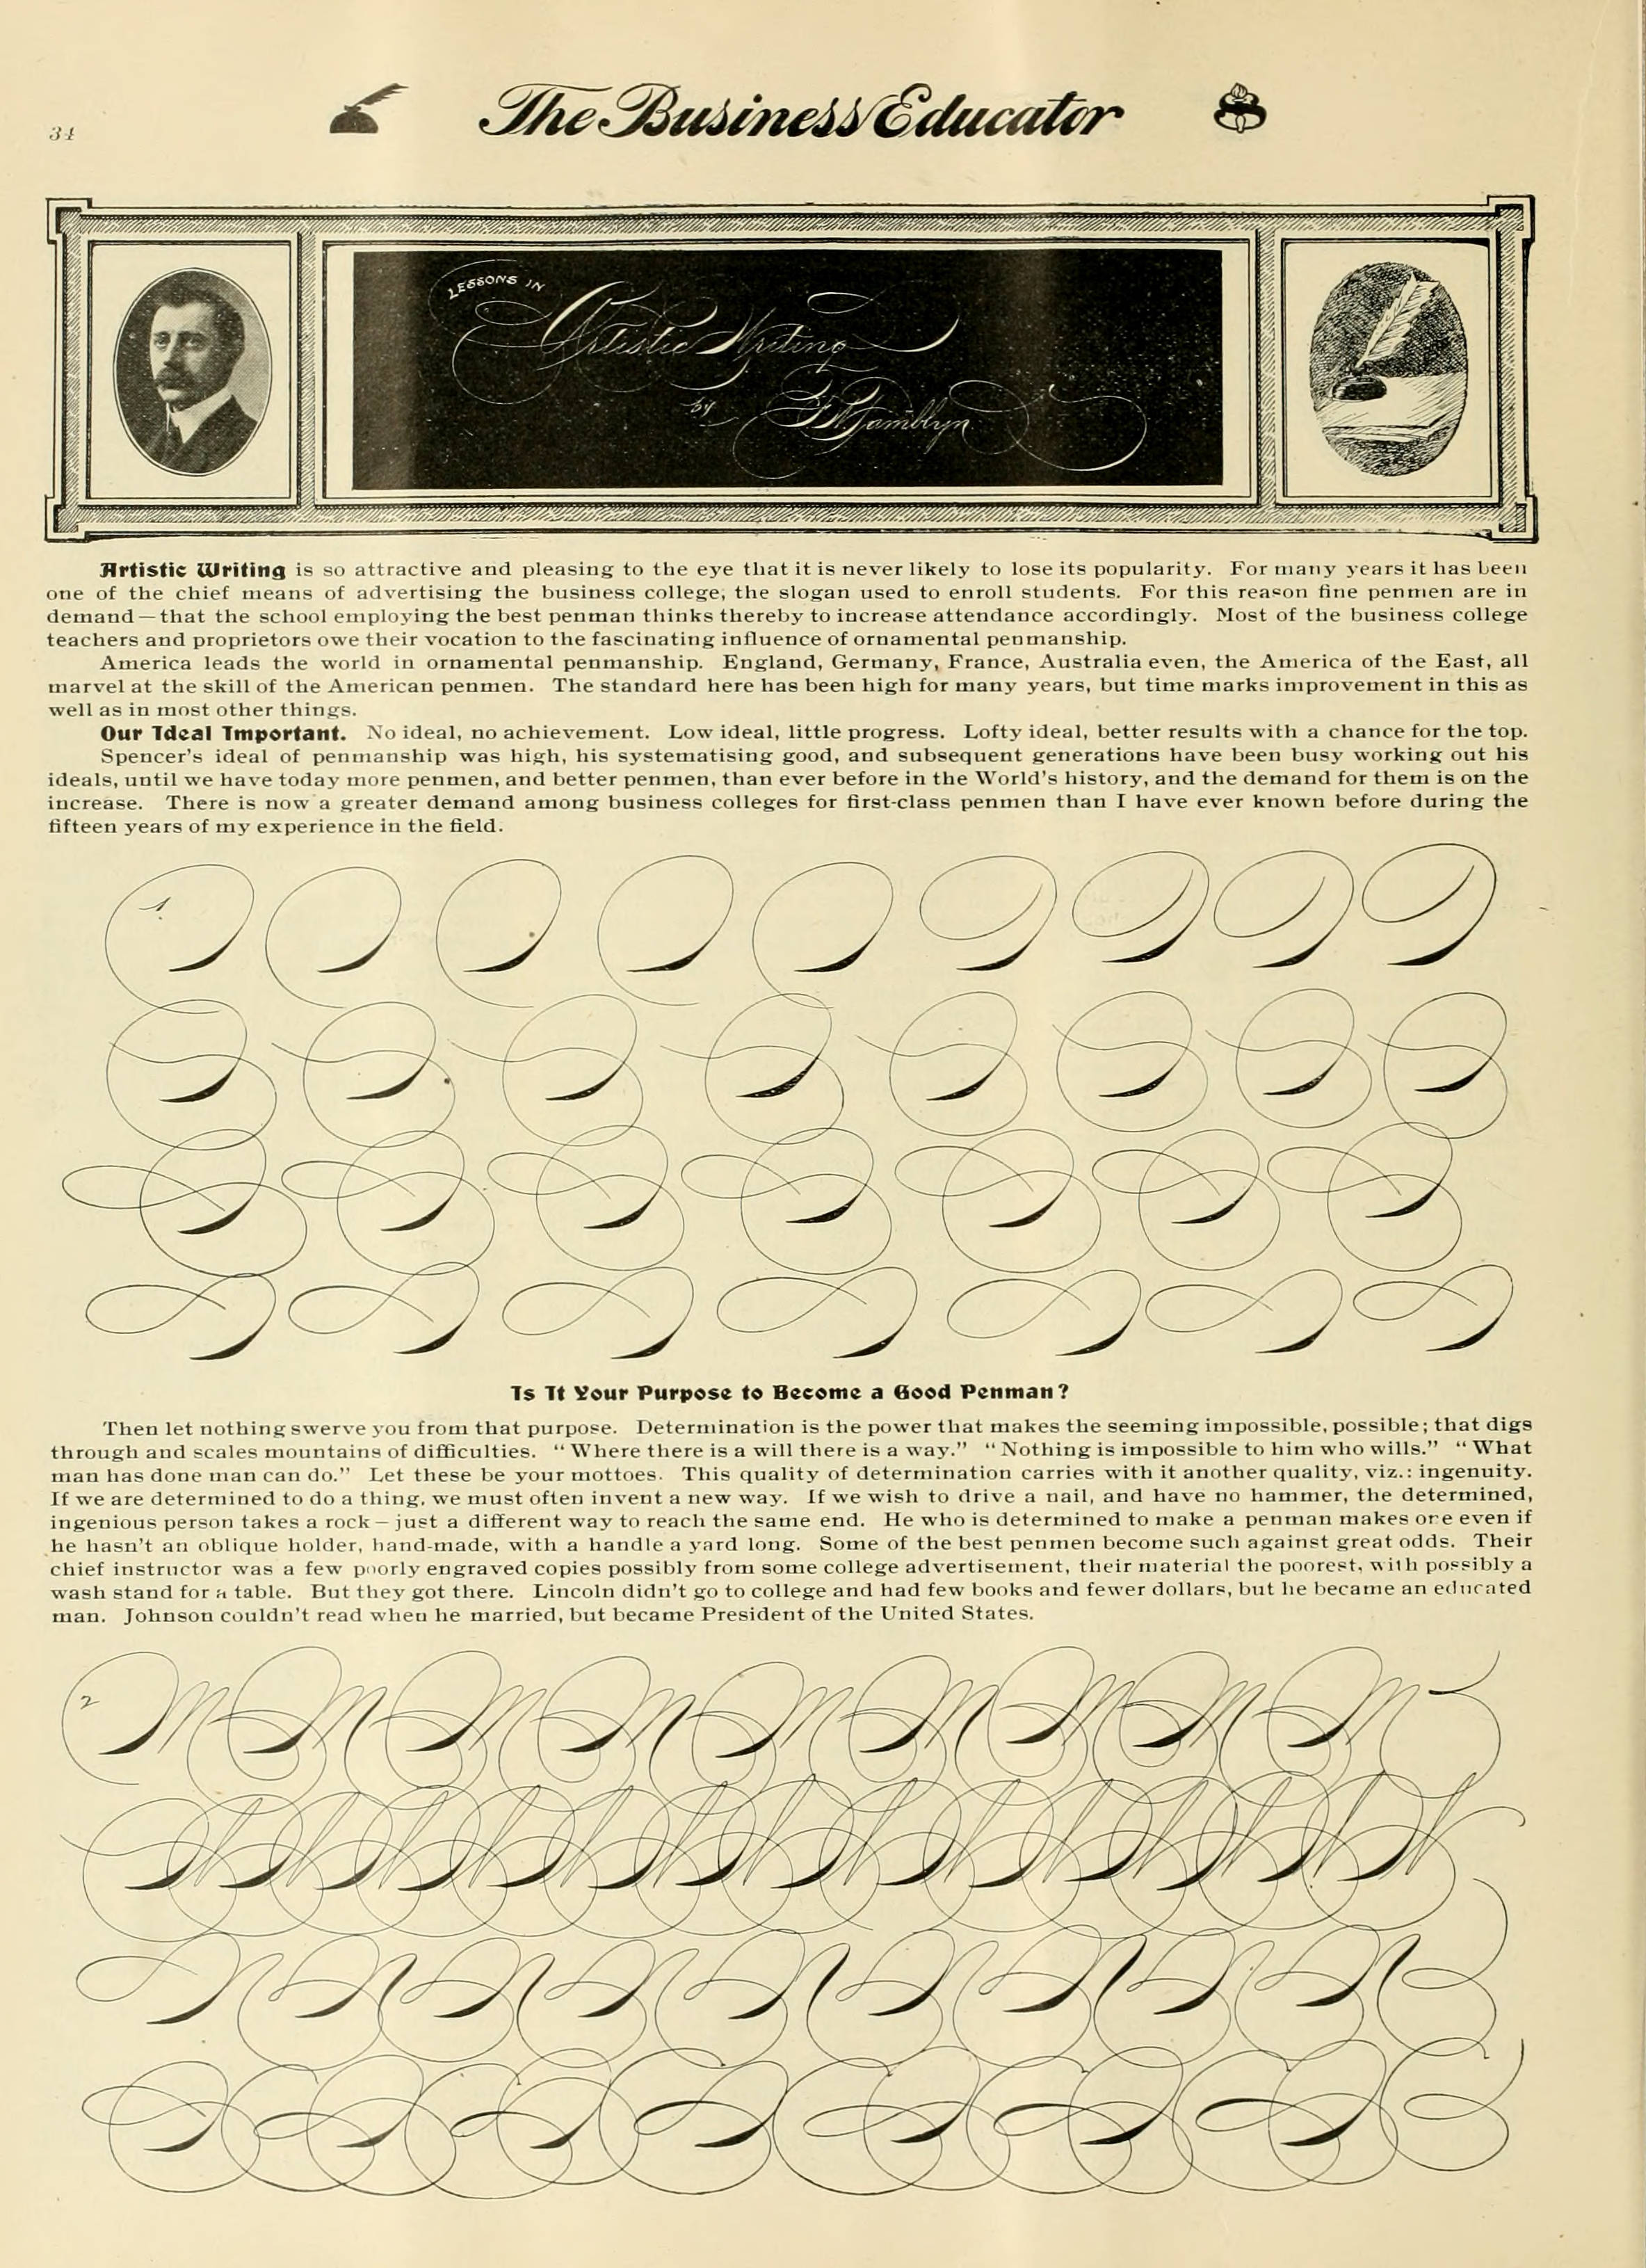 34
The Business Educator
LESSONS IN
Artistic Writing
by F. W. Tamblyn
Artistic Writing is so attractive and pleasing to the eye that it is never likely to lose its popularity. For many years it has been
one of the chief means of advertising the business college, the slogan used to enroll students. For this reason fine penmen are in
demand—that the school employing the best penman thinks thereby to increase attendance accordingly. Most of the business college
teachers and proprietors owe their vocation to the fascinating influence of ornamental penmanship.
America leads the world in ornamental penmanship. England, Germany, France, Australia even, the America of the East, all
marvel at the skill of the American penmen. The standard here has been high for many years, but time marks improvement in this as
well as in most other things.
Our Ideal Important. No ideal, no achievement. Low ideal, little progress. Lofty ideal, better results with a chance for the top.
Spencer's ideal of penmanship was high, his systematising good, and subsequent generations have been busy working out his
ideals, until we have today more penmen, and better penmen, than ever before in the World's history, and the demand for them is on the
increase. There is now a greater demand among business colleges for first-class penmen than I have ever known before during the
fifteen years of my experience in the field.
1
Is It Your Purpose to Become a Good Penman?
Then let nothing swerve you from that purpose. Determination is the power that makes the seeming impossible, possible; that digs
through and scales mountains of difficulties. "Where there is a will there is a way." "Nothing is impossible to him who wills." "What
man has done man can do." Let these be your mottoes. This quality of determination carries with it another quality, viz.: ingenuity.
If we are determined to do a thing, we must often invent a new way. If we wish to drive a nail, and have no hammer, the determined,
ingenious person takes a rock—just a different way to reach the same end. He who is determined to make a penman makes one even if
he hasn't an oblique holder, hand-made, with a handle a yard long. Some of the best penmen become such against great odds. Their
chief instructor was a few poorly engraved copies possibly from some college advertisement, their material the poorest, with possibly a
wash stand for a table. But they got there. Lincoln didn't go to college and had few books and fewer dollars, but he became an educated
man. Johnson couldn't read when he married, but became President of the United States.
2